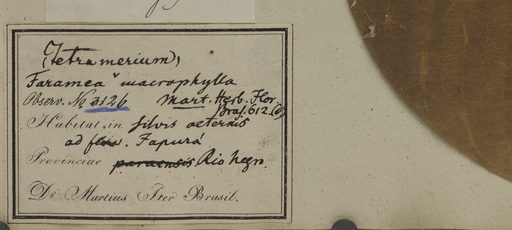 (Tetramerium)
Faramea macrophylla
Observ. No 3126 Mart. Herb. Flor.
Bras. 612 (6)
Habitat in silvis aeternis
ad fluv. Japurá
Provinciae paraensis Rio negro.
Dr. Martius Iter Brasil.